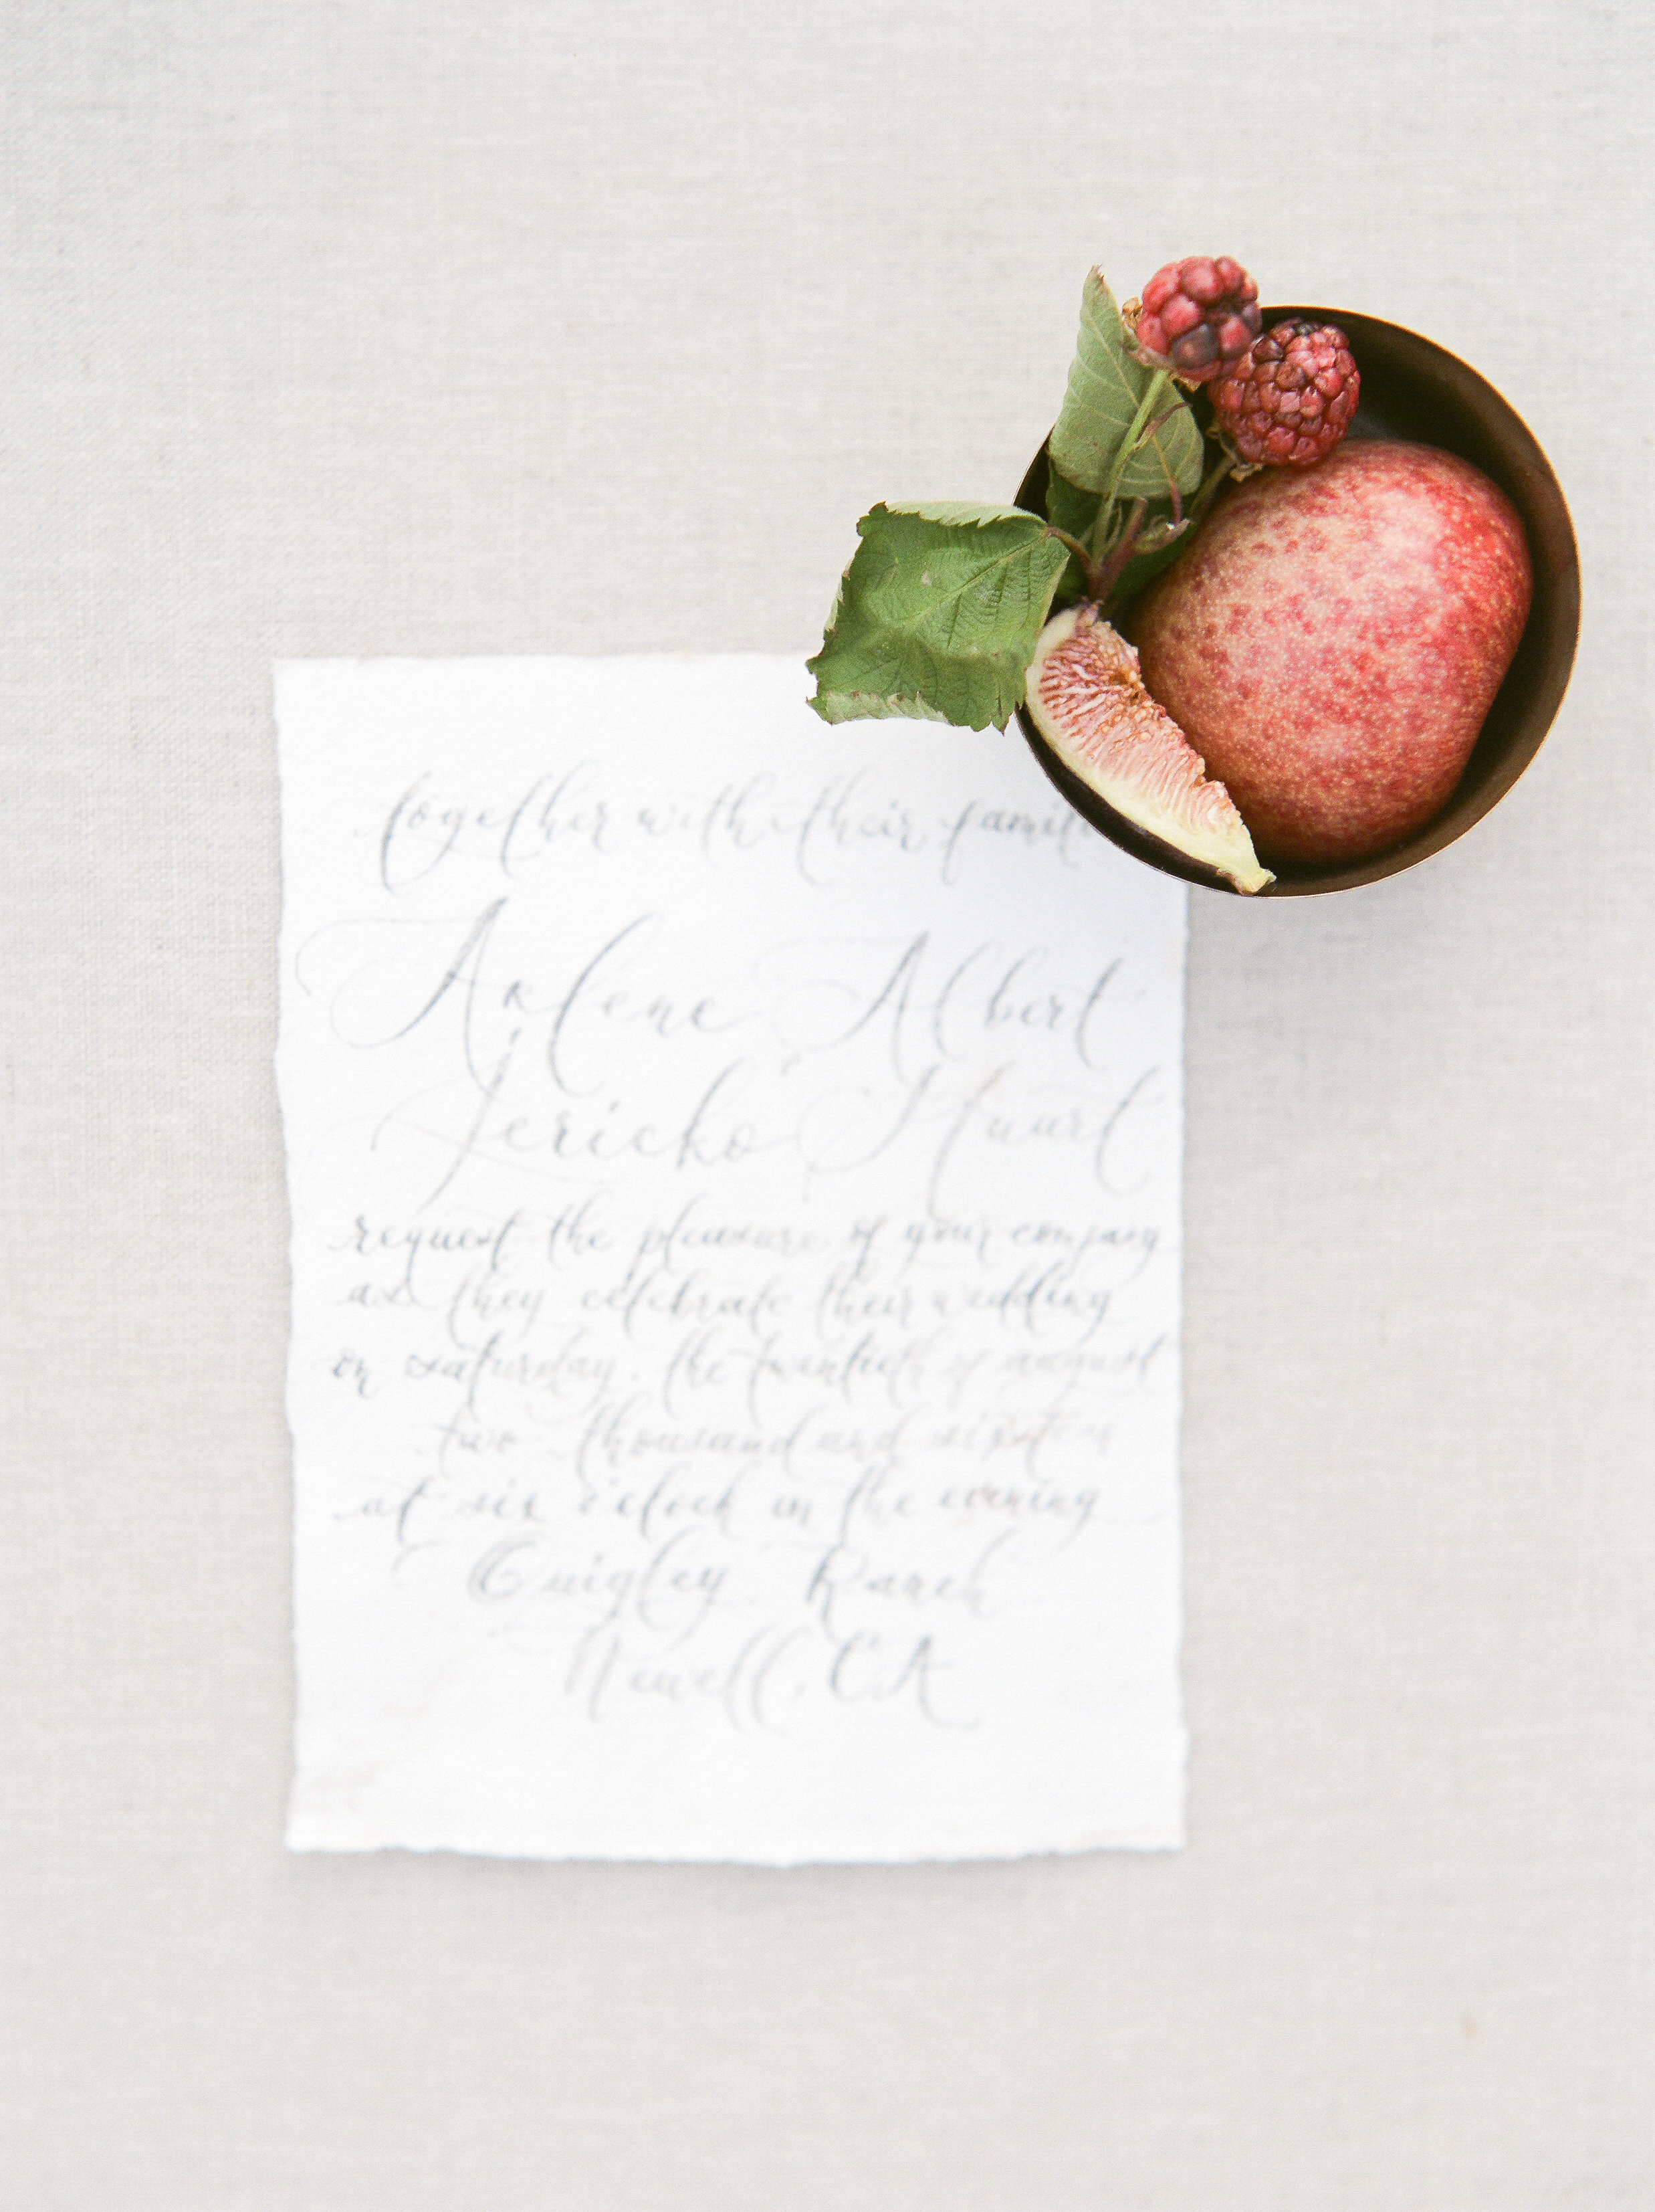 together with their famili
Arlene Albert
Jericko Stuart
request the pleasure of your company
as they celebrate their wedding
on saturday, the twentieth of august
two thousand and sixteen
at six o'clock in the evening
Quigley Ranch
Newell, CA